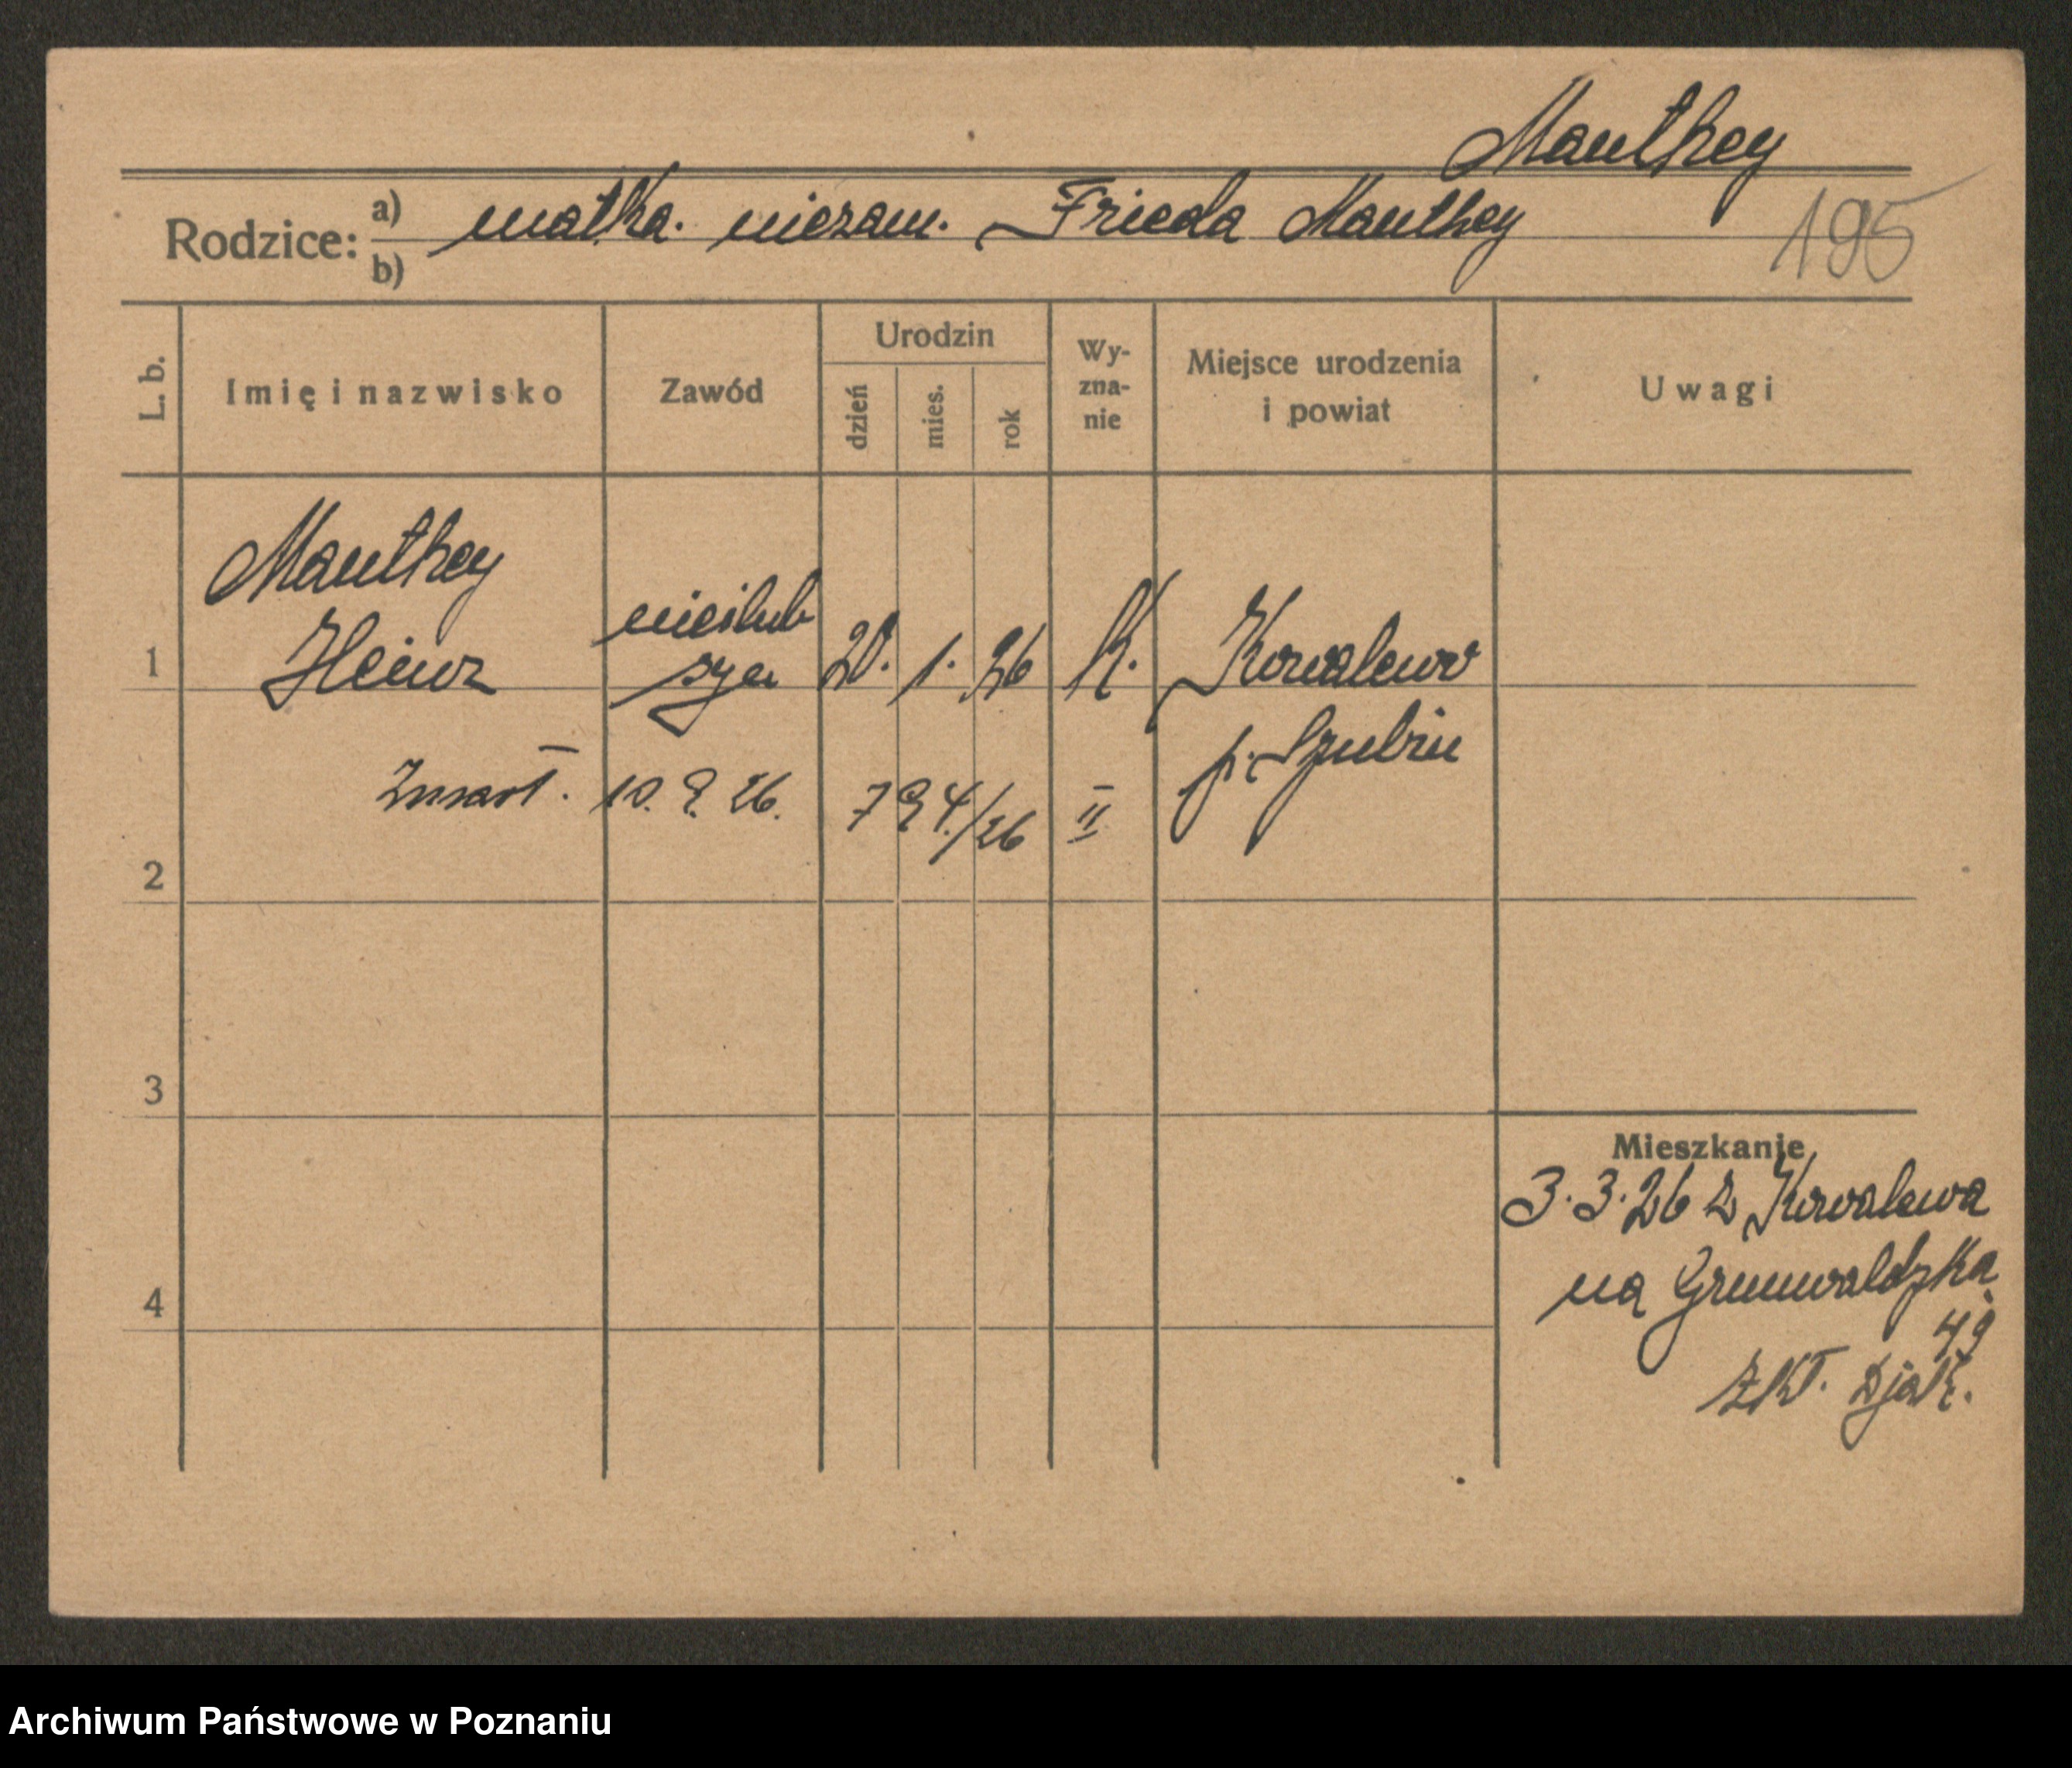 Manthey
Rodzice: a) matka. niezam. Frieda Manthey
b)
195
L. b. Imię i nazwisko Zawód Urodzin dzień mies. rok Wyznanie Miejsce urodzenia i powiat Uwagi
Manthey
1 Heinz nieślub syn 20. 1. 26 K. Kowalewo
p. Szubin
Zmarł. 10. 8. 26. 794/26 II
2
3
Mieszkanie
3.3.26 z Kowalewa
na Grunwaldzka
49
4
Zkł. Djak.
Archiwum Państwowe w Poznaniu